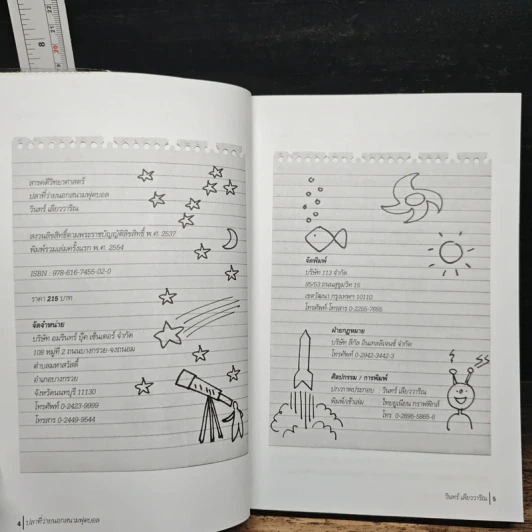 สารคดีวิทยาศาสตร์
ปลาที่ว่ายนอกสนามฟุตบอล
วินทร์ เลียววาริณ
สงวนลิขสิทธิ์ตามพระราชบัญญัติลิขสิทธิ์ พ.ศ. 2537
พิมพ์รวมเล่มครั้งแรก พ.ศ. 2554
ISBN : 978-616-7455-02-0
ราคา 215 บาท
จัดจำหน่าย
บริษัท อมรินทร์ บุ๊ค เซ็นเตอร์ จำกัด
108 หมู่ที่ 2 ถนนบางกรวย-จงถนอม
ตำบลมหาสวัสดิ์
อำเภอบางกรวย
จังหวัดนนทบุรี 11130
โทรศัพท์ 0-2423-9999
โทรสาร 0-2449-9544
4 ปลาที่ว่ายนอกสนามฟุตบอล
จัดพิมพ์
บริษัท 113 จำกัด
85/53 ถนนสุขุมวิท 15
เขตวัฒนา กรุงเทพฯ 10110
โทรศัพท์-โทรสาร 0-2255-7655
ฝ่ายกฎหมาย
บริษัท ลีกัล อินเทลลิเจนซ์ จำกัด
โทรศัพท์ 0-2942-3442-3
ศิลปกรรม / การพิมพ์
ปก/ภาพประกอบ : วินทร์ เลียววาริณ
พิมพ์/เข้าเล่ม : ไทยยูเนียน กราฟฟิกส์
วินทร์ เลียววาริณ 5